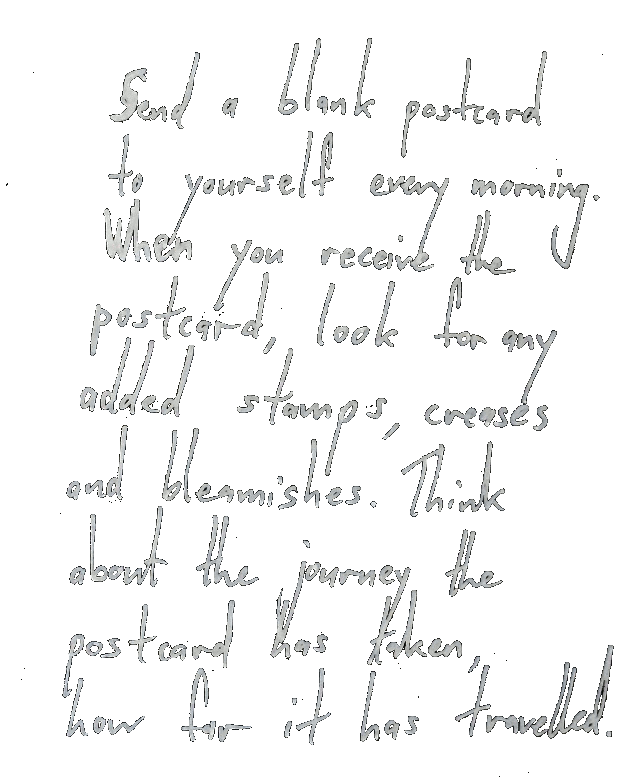 Send a blank postcard
to yourself every morning.
When you receive the
postcard, look for any
added stamps, creases
and bleamishes. Think
about the journey the
postcard has taken,
how far it has travelled.